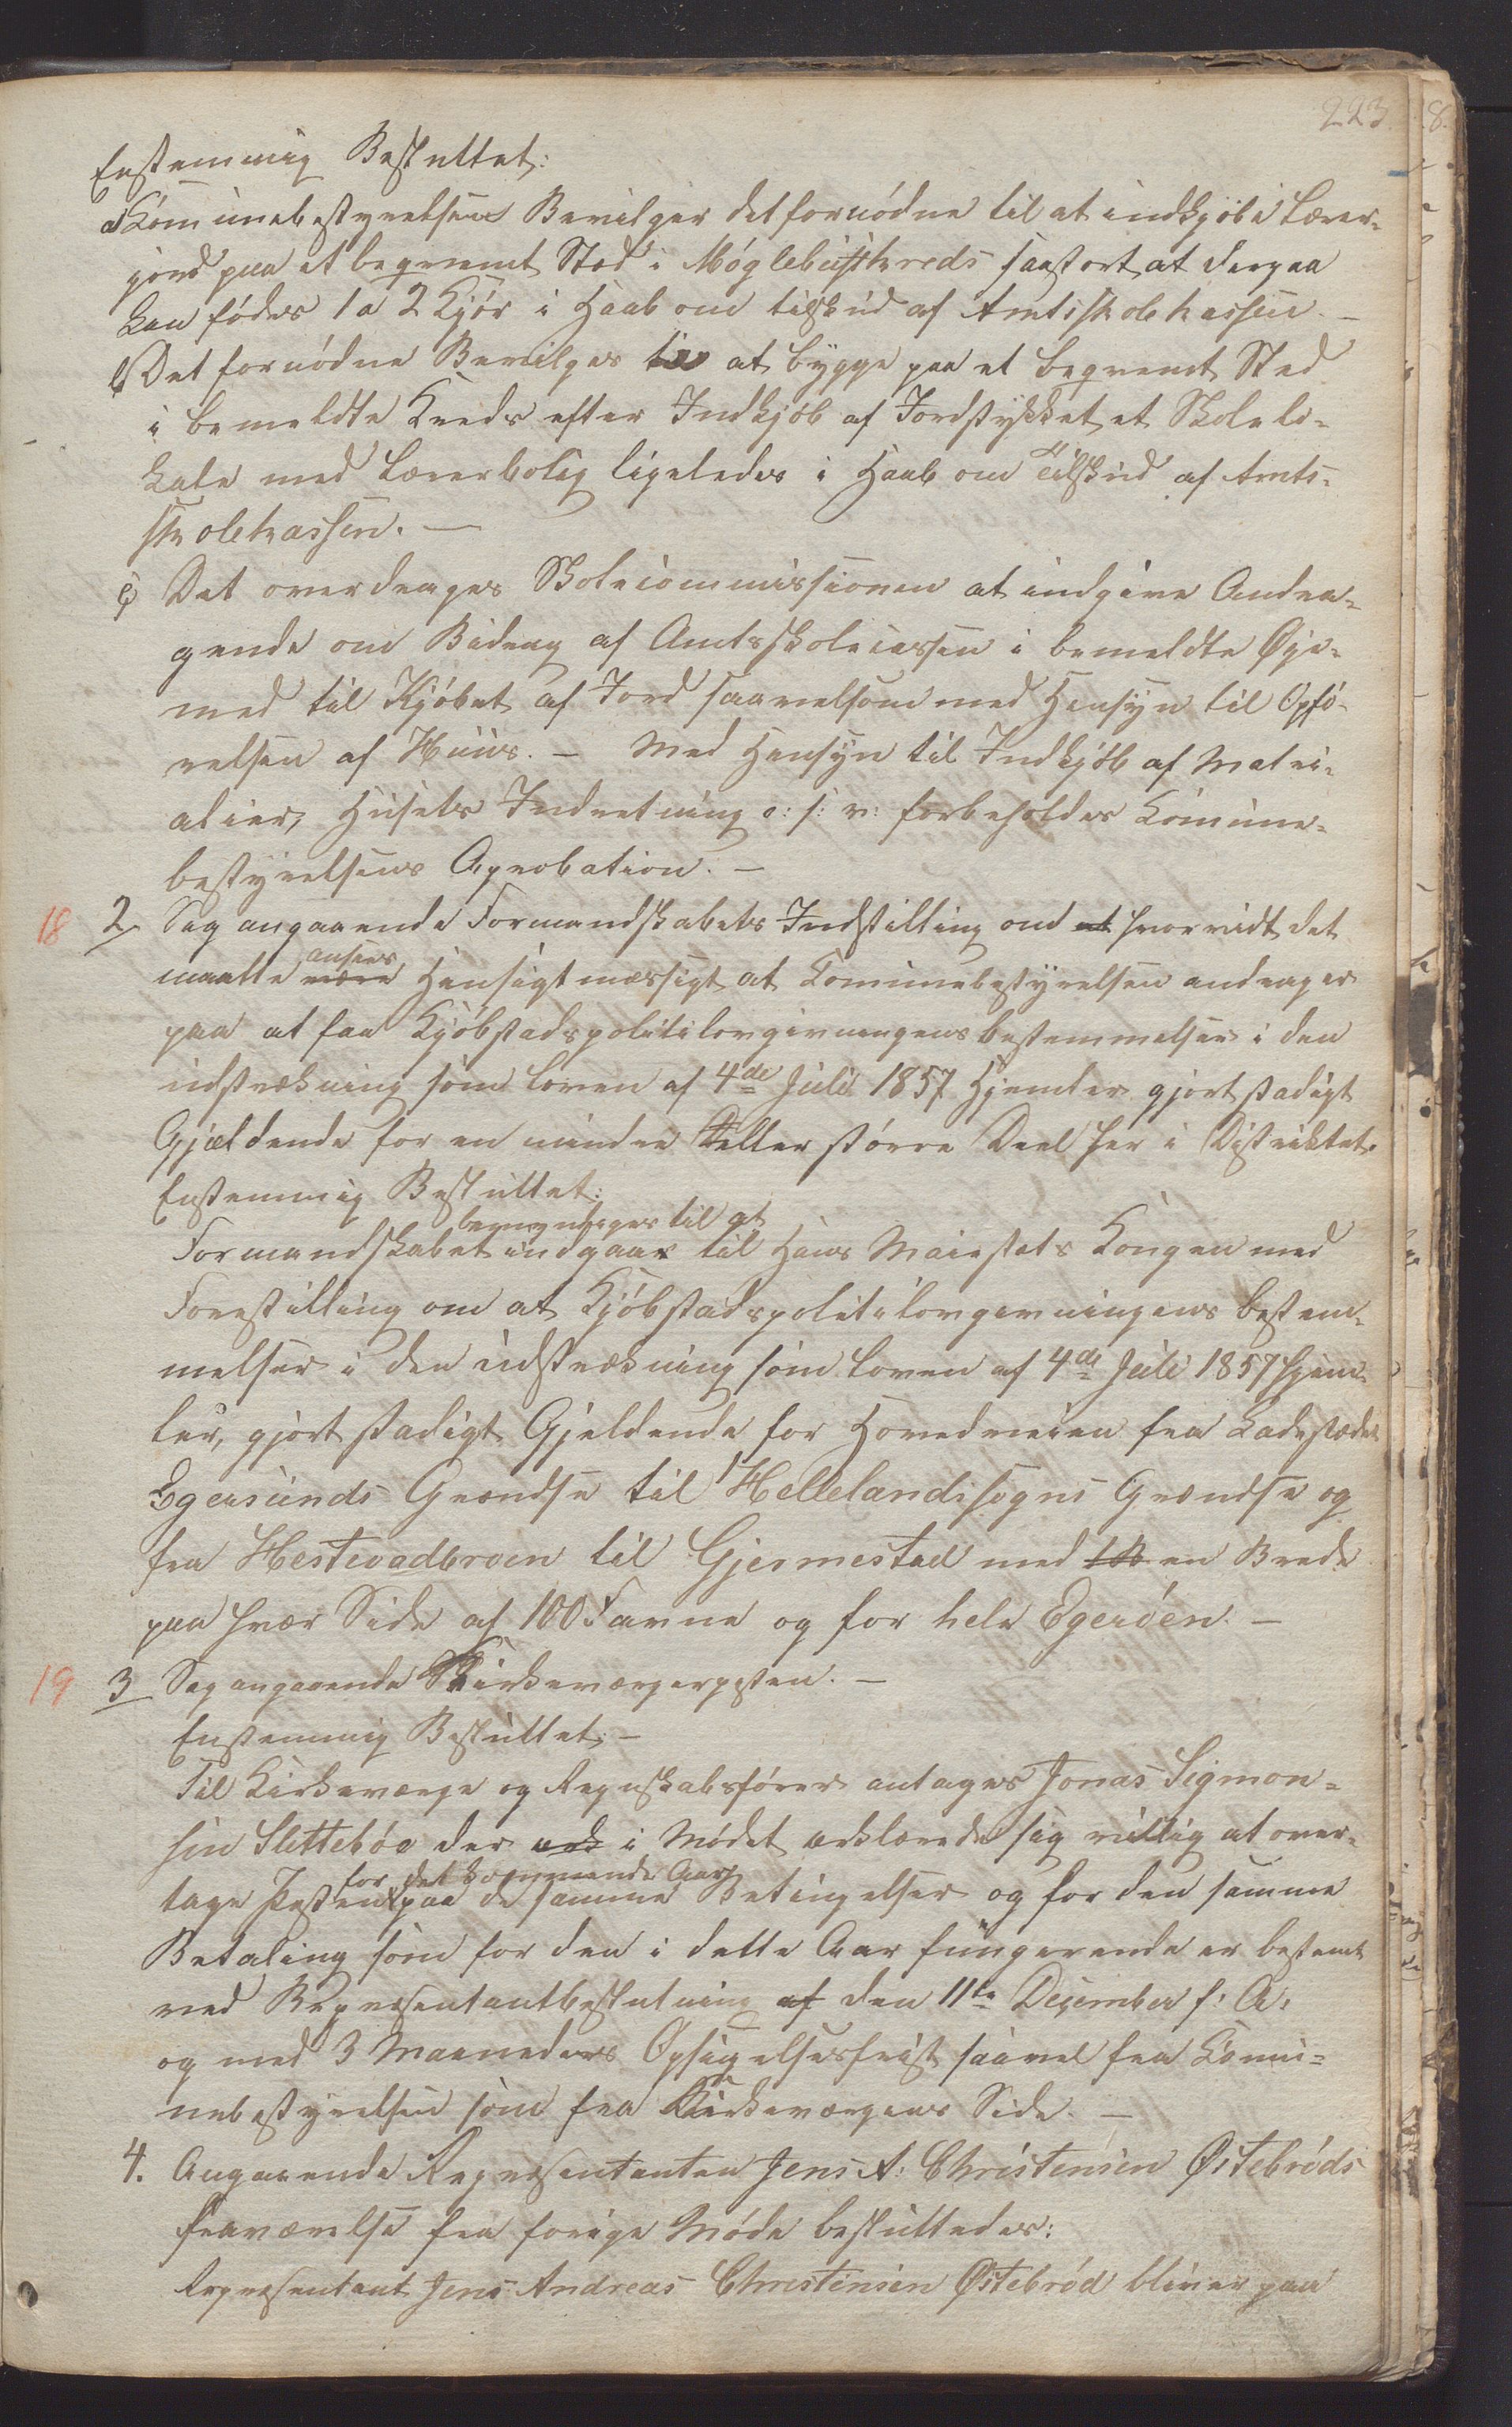 223.
Enstemmig Besluttet:
a) Komunebestyrelsen Bevilger det fornødne til at indkjøbe Lærer-
jord paa et beqvemt Sted i Møglebustkreds saastort at derpaa
kan fødes 1 a 2 Kjør i Haab om tilskud af Amtsskolekassen. —
b) Det fornødne Bevilges til at bygge paa et beqvemt Sted
i bemeldte Kreds efter Indkjøb af Jordstykket et Skolelo-
kale med Lærerbolig ligeledes i Haab om Tilskud af Amts-
skolekassen. —
c) Det overdrages Skolecommissionen at indgive Andra-
gende om Bidrag af Amtsskolecassen i bemeldte Øje-
med til Kjøbet af Jord saavelsom med Hensyn til Opfø-
relsen af Huus. — Med Hensyn til Indkjøb af Matri-
alier, Husets Indretning o: s: v: forbeholdes Komune-
bestyrelsens Aprobation. —
18 2 Sag angaaende Formandskabets Indstilling om at hvorvidt det
maatte være ansees Hensigtmæssigt at Komunebestyrelsen andrager
paa at faa Kjøbstadspolitilovgivningens bestemmelser i den
udstrækning som loven af 4de Juli 1857 Hjemler gjort stadigt
Gjældende for en mindre eller større Deel her i Distriktet.
Enstemmig Besluttet:
bemyndiges til at
Formandskabet indgaar til Hans Maiestæts Kongen med
Forestilling om at Kjøbstadspolitilovgivningens bestem-
melser i den udstrækning som loven af 4de Juli 1857 hjem-
ler, gjort stadigt Gjeldende for Hovedveien fra Ladestedet
Egersunds Grændse til Hellelandssogns Grændse og
fra Hestevadbroen til Gjermestad med en Brede
paa hver Side af 100 Favne og for hele Egerøen. —
19 3 Sag angaaende Kirkeværgerposten. —
Enstemmig Besluttet: —
Til Kirkeværge og Regnskabsfører antages Jonas Sigmon-
sen Slettebøe der i Mødet erklærede sig villig at over-
for det kommende Aar
tage Posten paa de samme Betingelser og for den samme
Betaling som for den i dette Aar fungerende er bestemt
ved Repræsentantbeslutning af den 11te December f: A:
og med 3 Maaneders Opsigelsesfrist saavel fra Komu-
nebestyrelsen som fra Kirkeværgens Side. —
4. Angaaende Repræsentanten Jens A: Christensen Østebrøds
fraværelse fra forige Møde besluttedes:
Repræsentant Jens Andreas Christensen Østebrød bliver paa